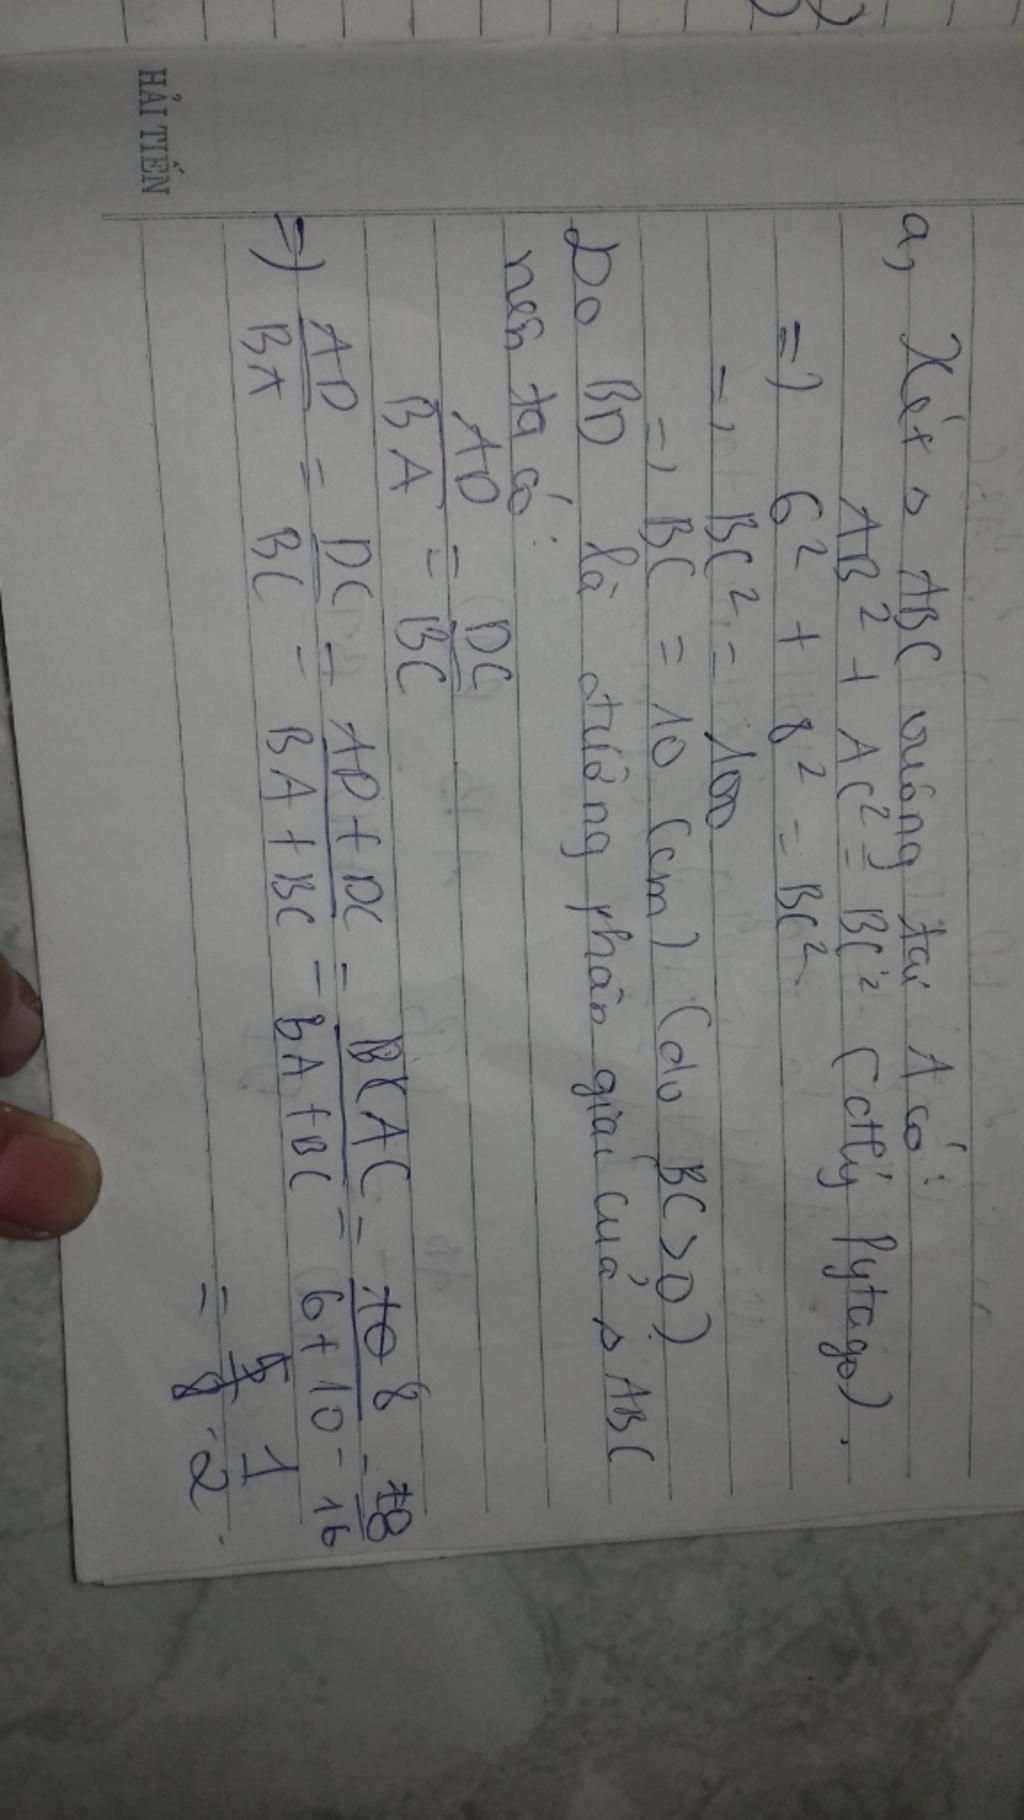 HẢI TIẾN
a, Xét △ ABC vuông tại A có:
AB² + AC² = BC² (đlý Pytago).
=) 6² + 8² = BC²
=, BC² = 100
=, BC = 10 (cm) (do BC > 0)
Do BD là đường phân giác của △ ABC
nên ta có:
AD/BA = DC/BC
=) AD/BA = DC/BC = AD+DC/BA+BC = AC/BA+BC = 8/6+10 = 8/16
= 1/2.